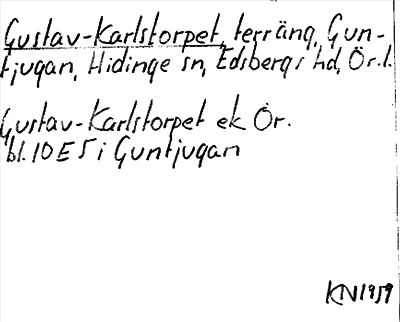 Gustav-Karlstorpet, terräng, Gun-
tjugan, Hidinge sn, Edsbergs hd, Ör.l.
Gustav-Karlstorpet ek Ör.
bl. 10 E 5 i Guntjugan
KN1959